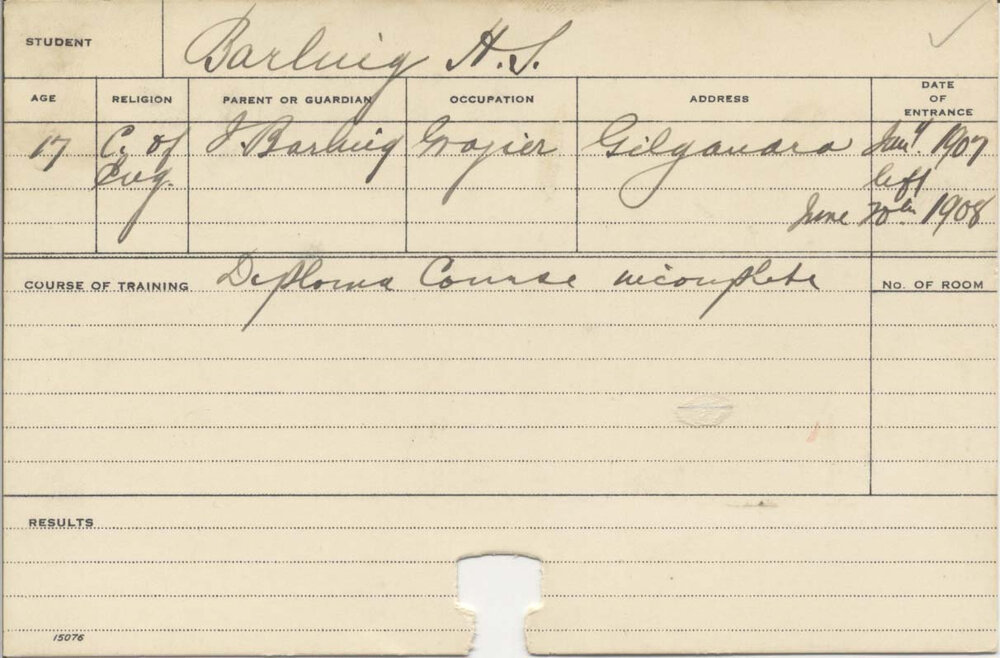 STUDENT Barling H.S.
AGE RELIGION PARENT OR GUARDIAN OCCUPATION ADDRESS DATE OF ENTRANCE
17 C. of J. Barling Grazier Gilgandra Jany 1907
Eng. left
June 30th 1908
COURSE OF TRAINING Diploma Course incomplete No. OF ROOM
RESULTS
15076